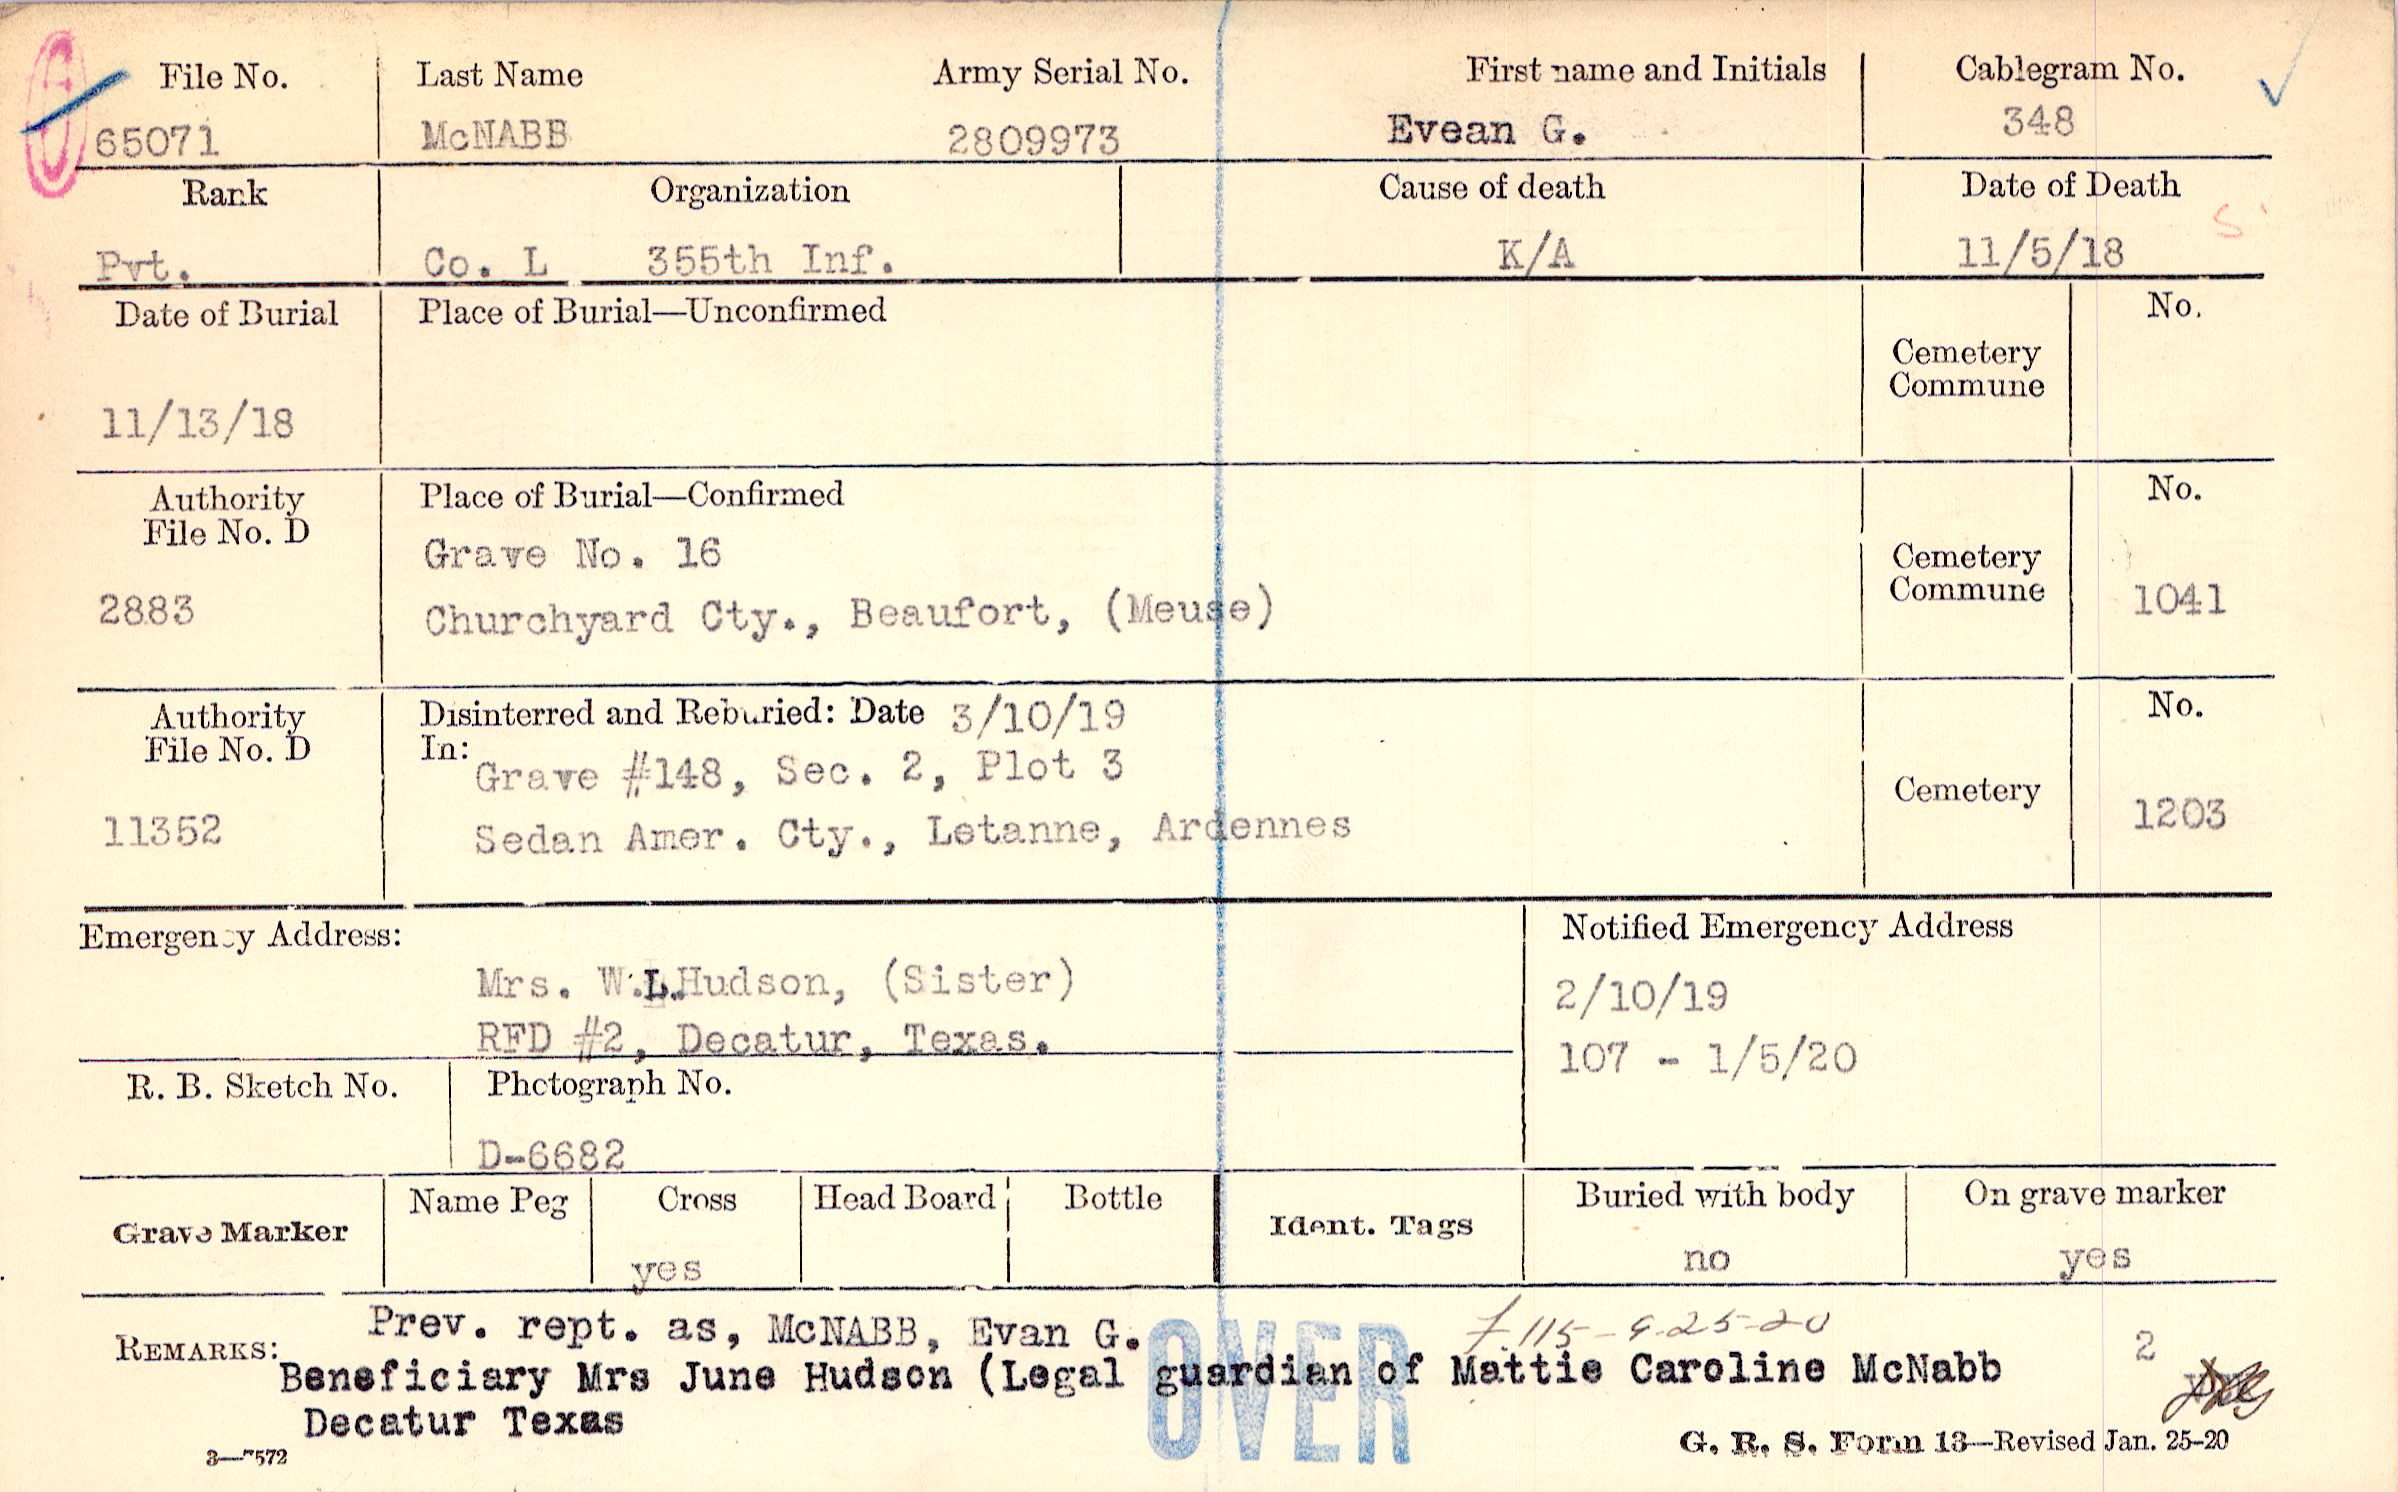 File No. Last Name Army Serial No. First name and Initials Cablegram No.
65071 McNABB 2809973 Evean G. 348
Rank Organization Cause of death Date of Death
Pvt. Co. L 355th Inf. K/A 11/5/18
Date of Burial Place of Burial—Unconfirmed No.
Cemetery
Commune
11/13/18
Authority Place of Burial—Confirmed No.
File No. D
Grave No. 16 Cemetery
2883 Churchyard Cty., Beaufort, (Meuse) Commune 1041
Authority Disinterred and Reburied: Date 3/10/19 No.
File No. D In:
Grave #148, Sec. 2, Plot 3 Cemetery
11352 Sedan Amer. Cty., Letanne, Ardennes 1203
Emergency Address: Notified Emergency Address
Mrs. W.L.Hudson, (Sister) 2/10/19
RFD #2, Decatur, Texas. 107 - 1/5/20
R. B. Sketch No. Photograph No.
D-6682
Name Peg Cross Head Board Bottle Buried with body On grave marker
Grave Marker Ident. Tags
yes no yes
Prev. rept. as, McNABB, Evan G. 2
REMARKS:
Beneficiary Mrs June Hudson (Legal guardian of Mattie Caroline McNabb
Decatur Texas
OVER
G. R. S. Form 13—Revised Jan. 25-20